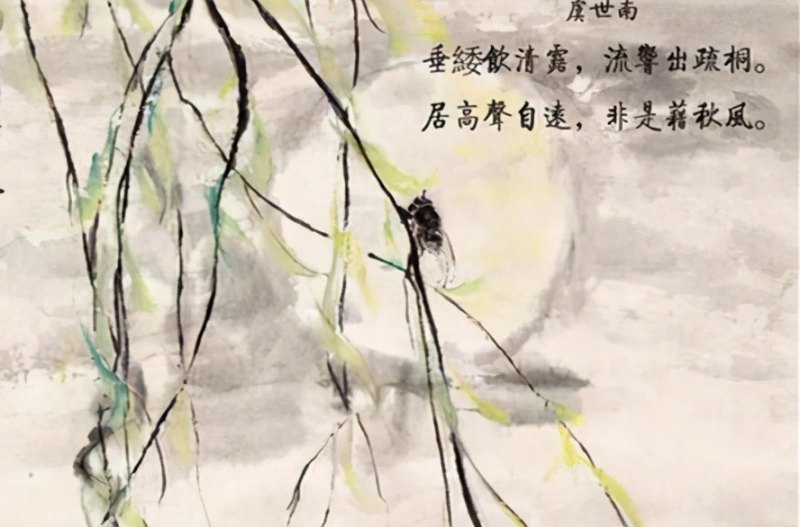 虞世南
垂緌飲清露，流響出疏桐。
居高聲自遠，非是藉秋風。